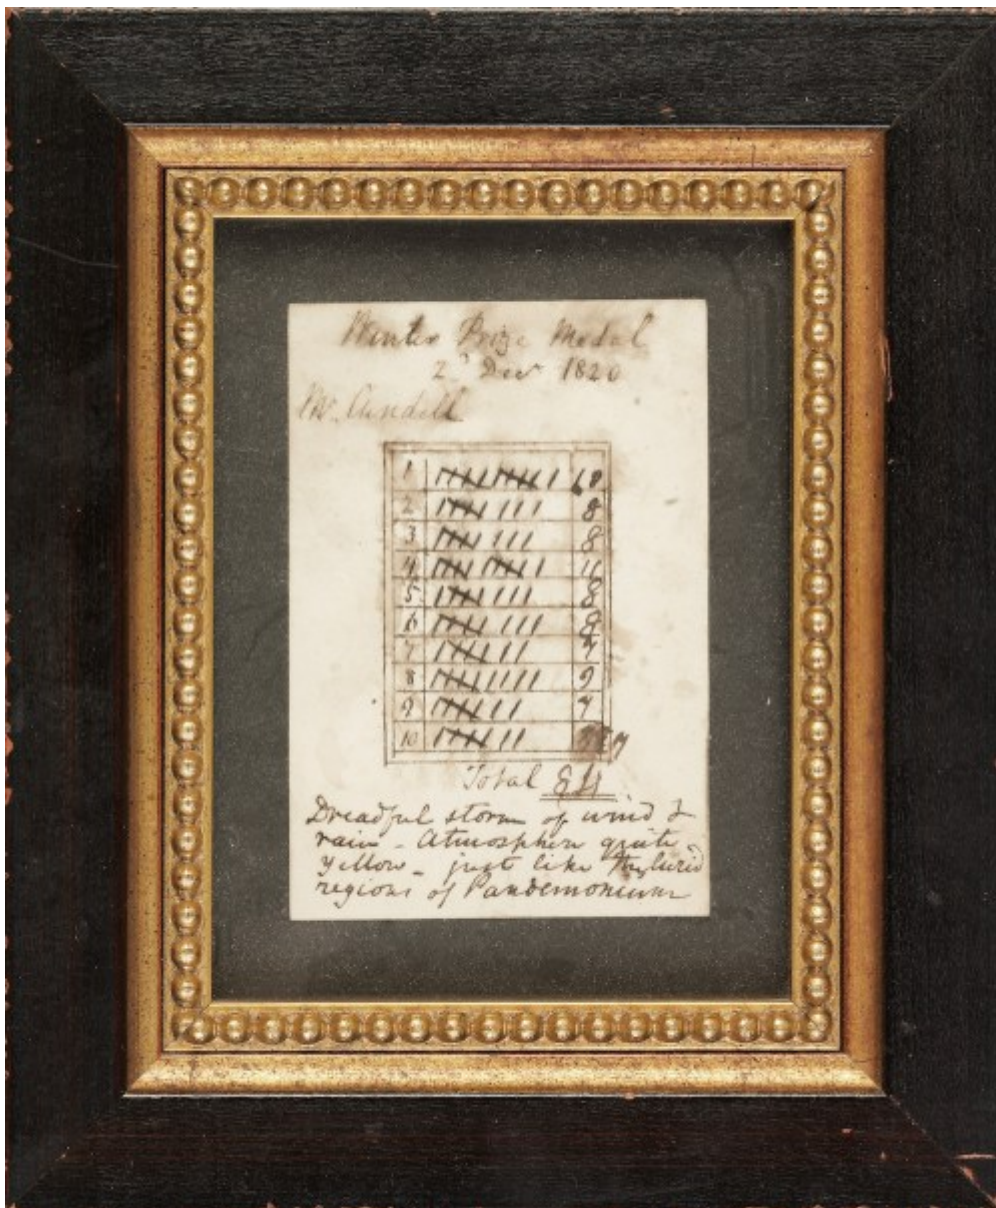 Winter Prize Medal
2d Decr 1820
Mr. Cundell
1
2 8
3 8
4 11
5 8
6 8
7 7
8 9
9 7
10 7
Total 84
Dreadful storm of wind &
rain - Atmosphere quite
yellow - just like the lurid
regions of Pandemonium